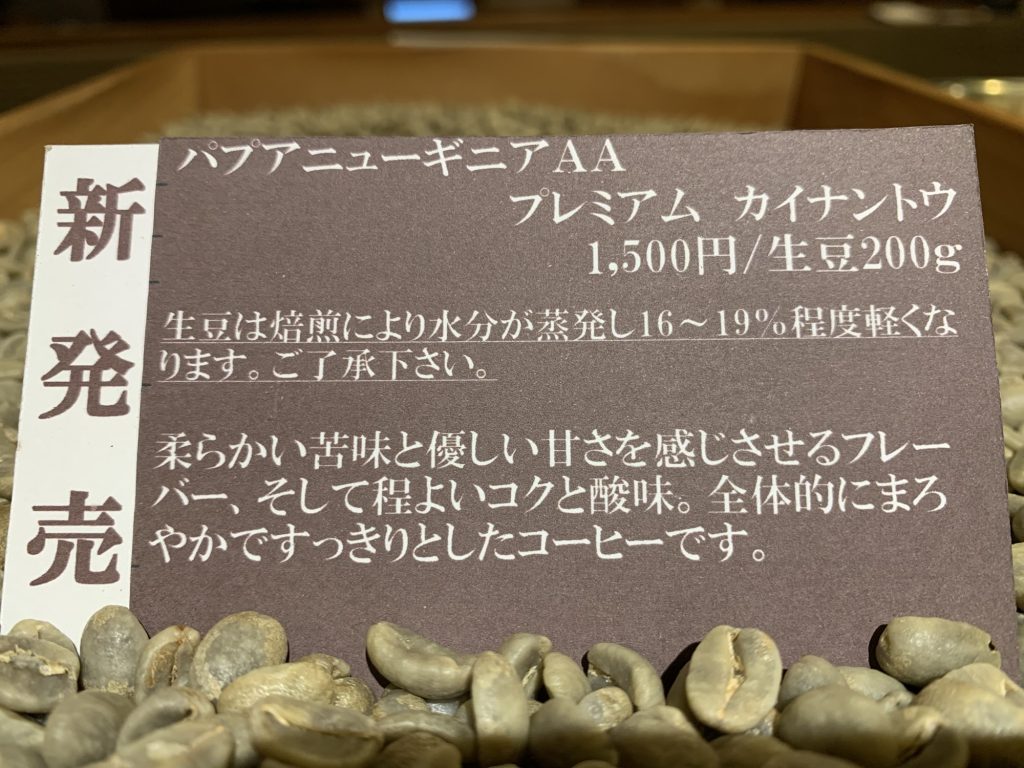 新発売
パプアニューギニアAA
プレミアム カイナントウ
1,500円/生豆200g
生豆は焙煎により水分が蒸発し16～19%程度軽くな
ります。ご了承下さい。
柔らかい苦味と優しい甘さを感じさせるフレー
バー、そして程よいコクと酸味。全体的にまろ
やかですっきりとしたコーヒーです。